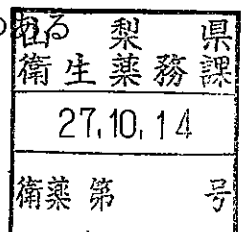 のある
山梨県
衛生薬務課
27.10.14
衛薬第　　号